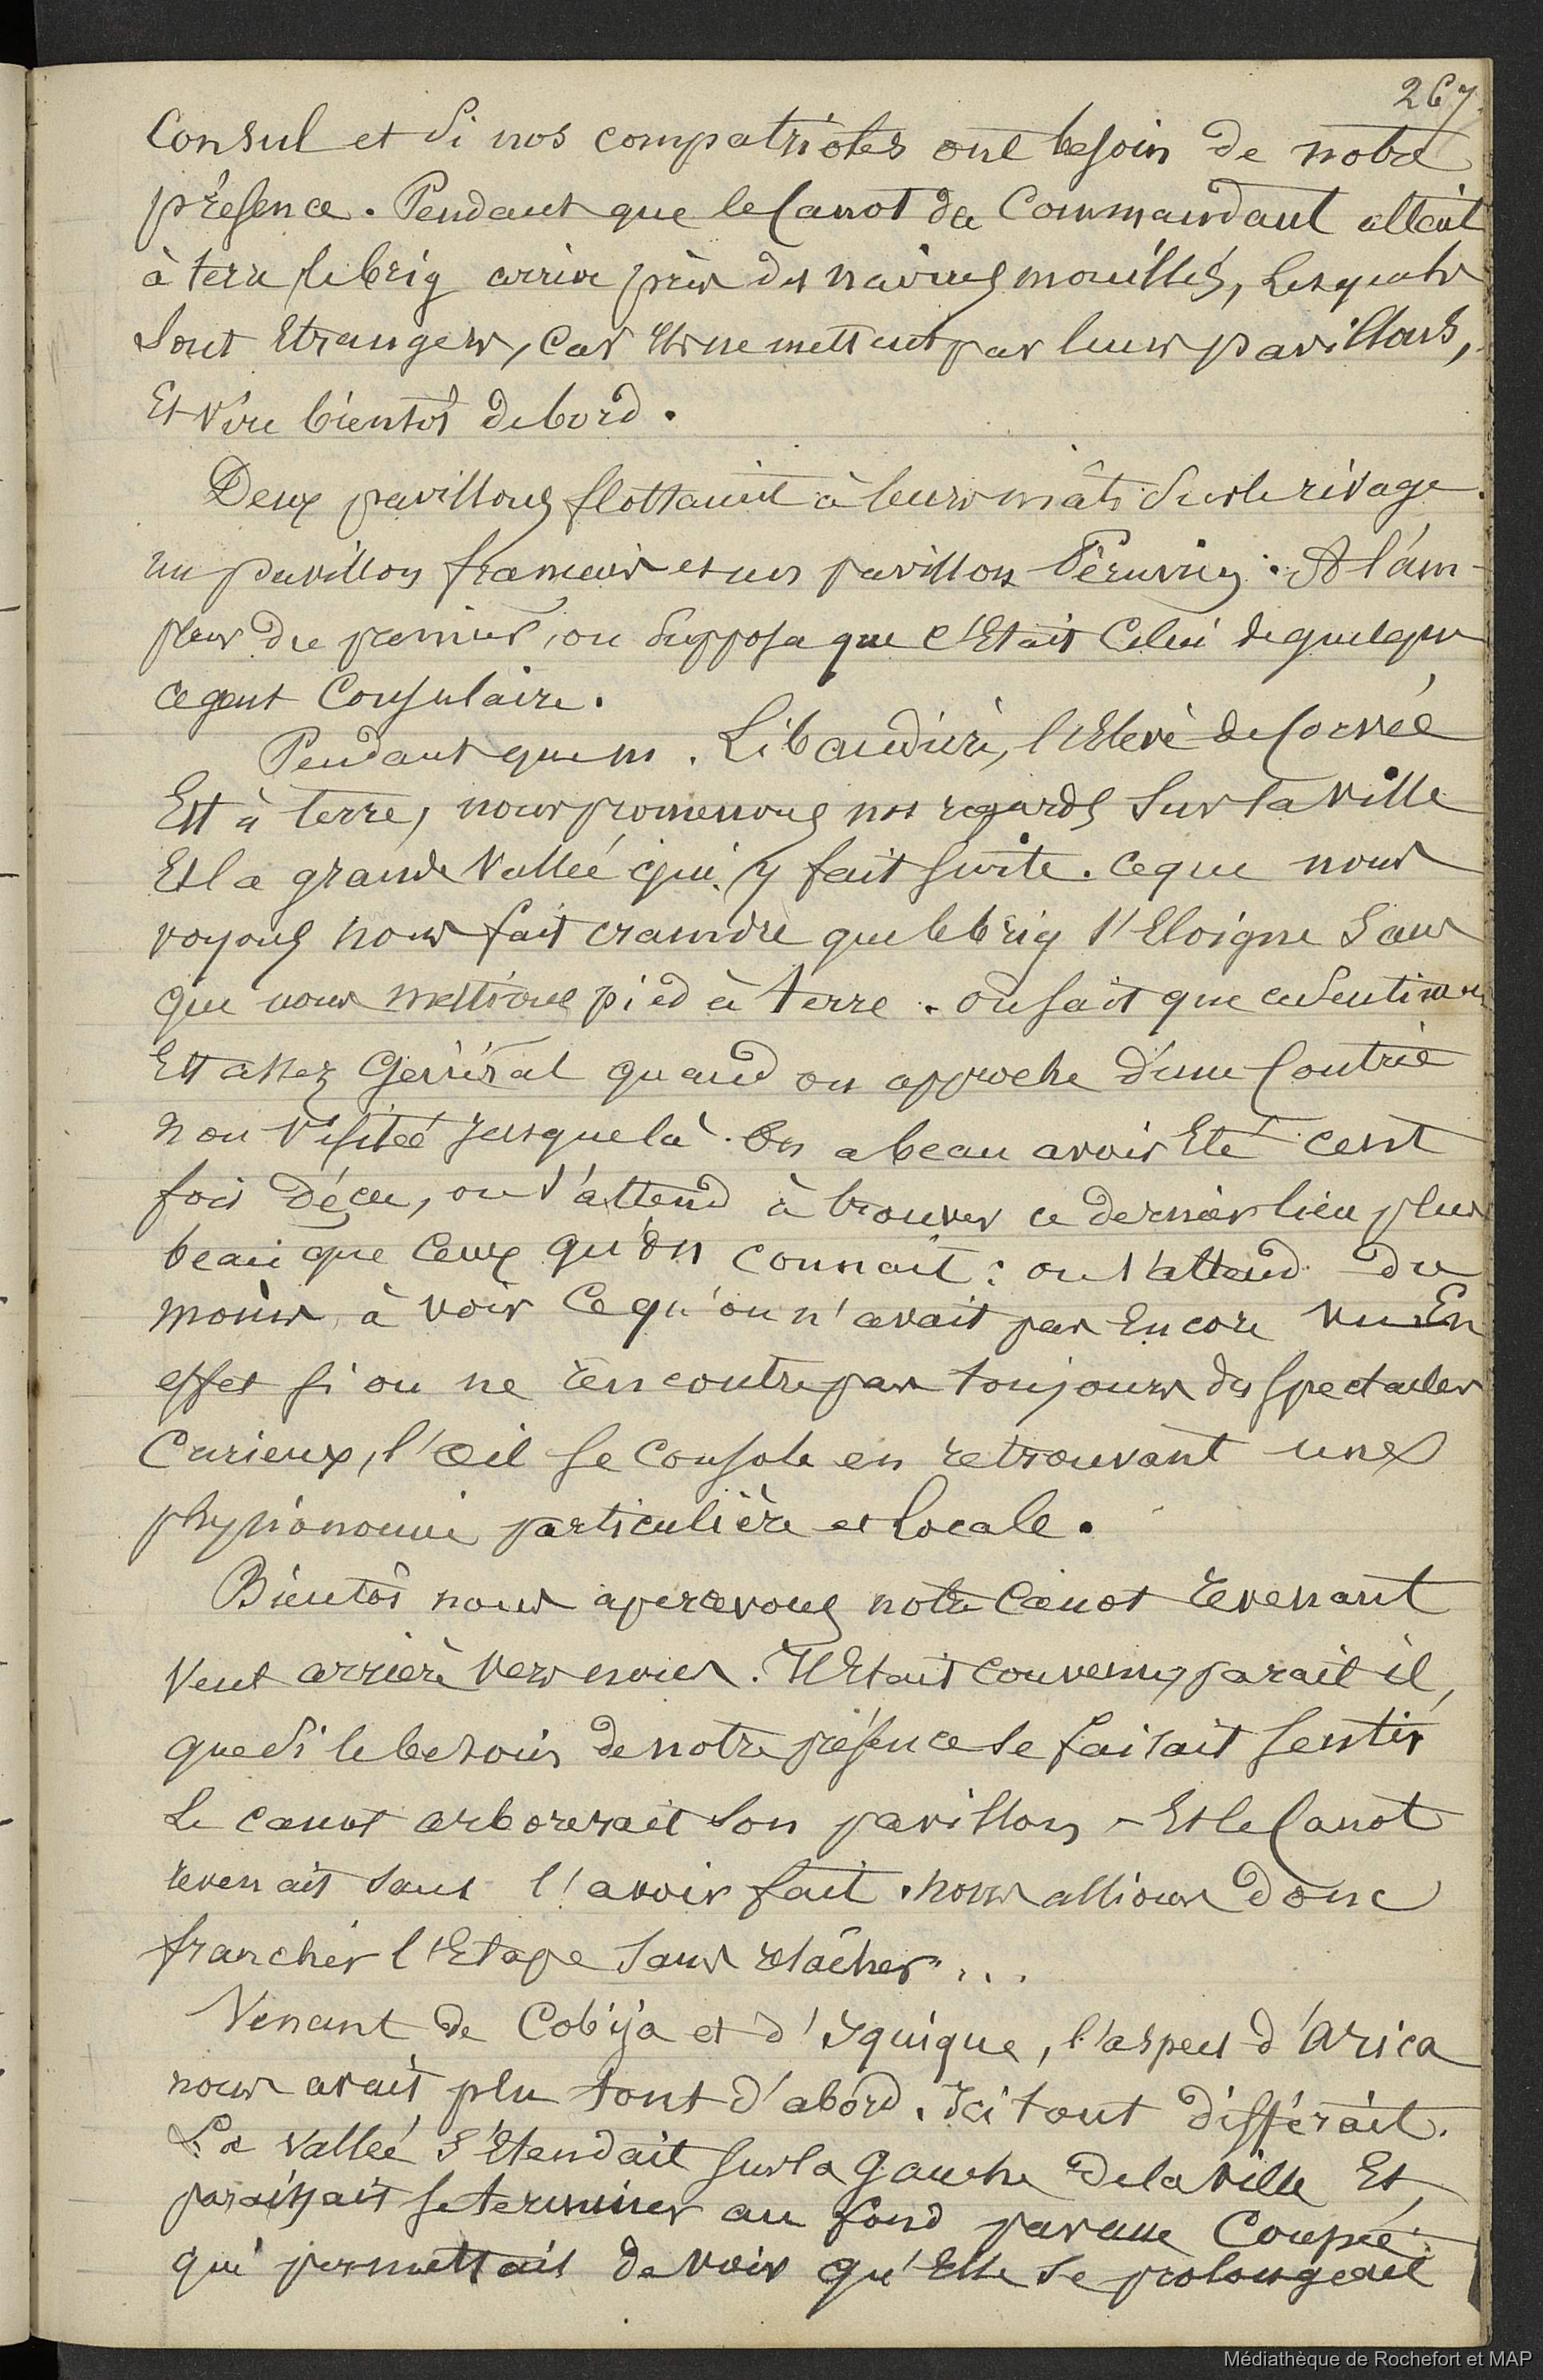 267
Consul et si nos compatriotes ont besoin de notre
présence. Pendant que le Canot du Commandant allait
à terre le brig arrive près des navires mouillés, lesquels
sont Etrangers, car ils ne mettent pas leurs pavillons,
Et vire bientôt de bord.
Deux pavillons flottaient à leurs mâts sur le rivage.
un pavillon français et un pavillon Péruvien. A l'am-
pleur du premier, on supposa que c'Etait Celui de quelque
agent Consulaire.
Pendant que m. Libaudière, l'Elève de Corvée
Est à terre, nous promenons nos regards sur la ville
Et la grande Vallée qui y fait suite. ce que nous
voyons nous fait craindre que le brig s'Eloigne sans
que nous mettions pied à terre. on sait que ce sentiment
Est assez Général quand on approche d'une Contrée
non visitée jusque là. On a beau avoir Eté cent
fois déçu, on s'attend à trouver ce dernier lieu plus
beau que Ceux qu'on connait : on s'attend du
moins à voir Ce qu'on n'avait pas Encore vu. En
effet si on ne rencontre pas toujours des spectacles
Curieux, l'œil se console en retrouvant une
physionomie particulière et locale.
Bientôt nous apercevons notre Canot revenant
Vent arrière vers nous. Il Etait convenu, parait il,
que si le besoin de notre présence se faisait sentir
Le canot arborerait son pavillon - Et le Canot
revenait sans l'avoir fait. nous allions donc
franchir l'Etape sans relâcher...
Venant de Cobija et d'Iquique, l'aspect d'Arica
nous avait plu tout d'abord. Ici tout différait.
La vallée s'Etendait sur la Gauche de la ville Et,
paraissait se terminer au fond par une Coupée
qui permettait de voir qu'Elle se prolongeait
Médiathèque de Rochefort et MAP